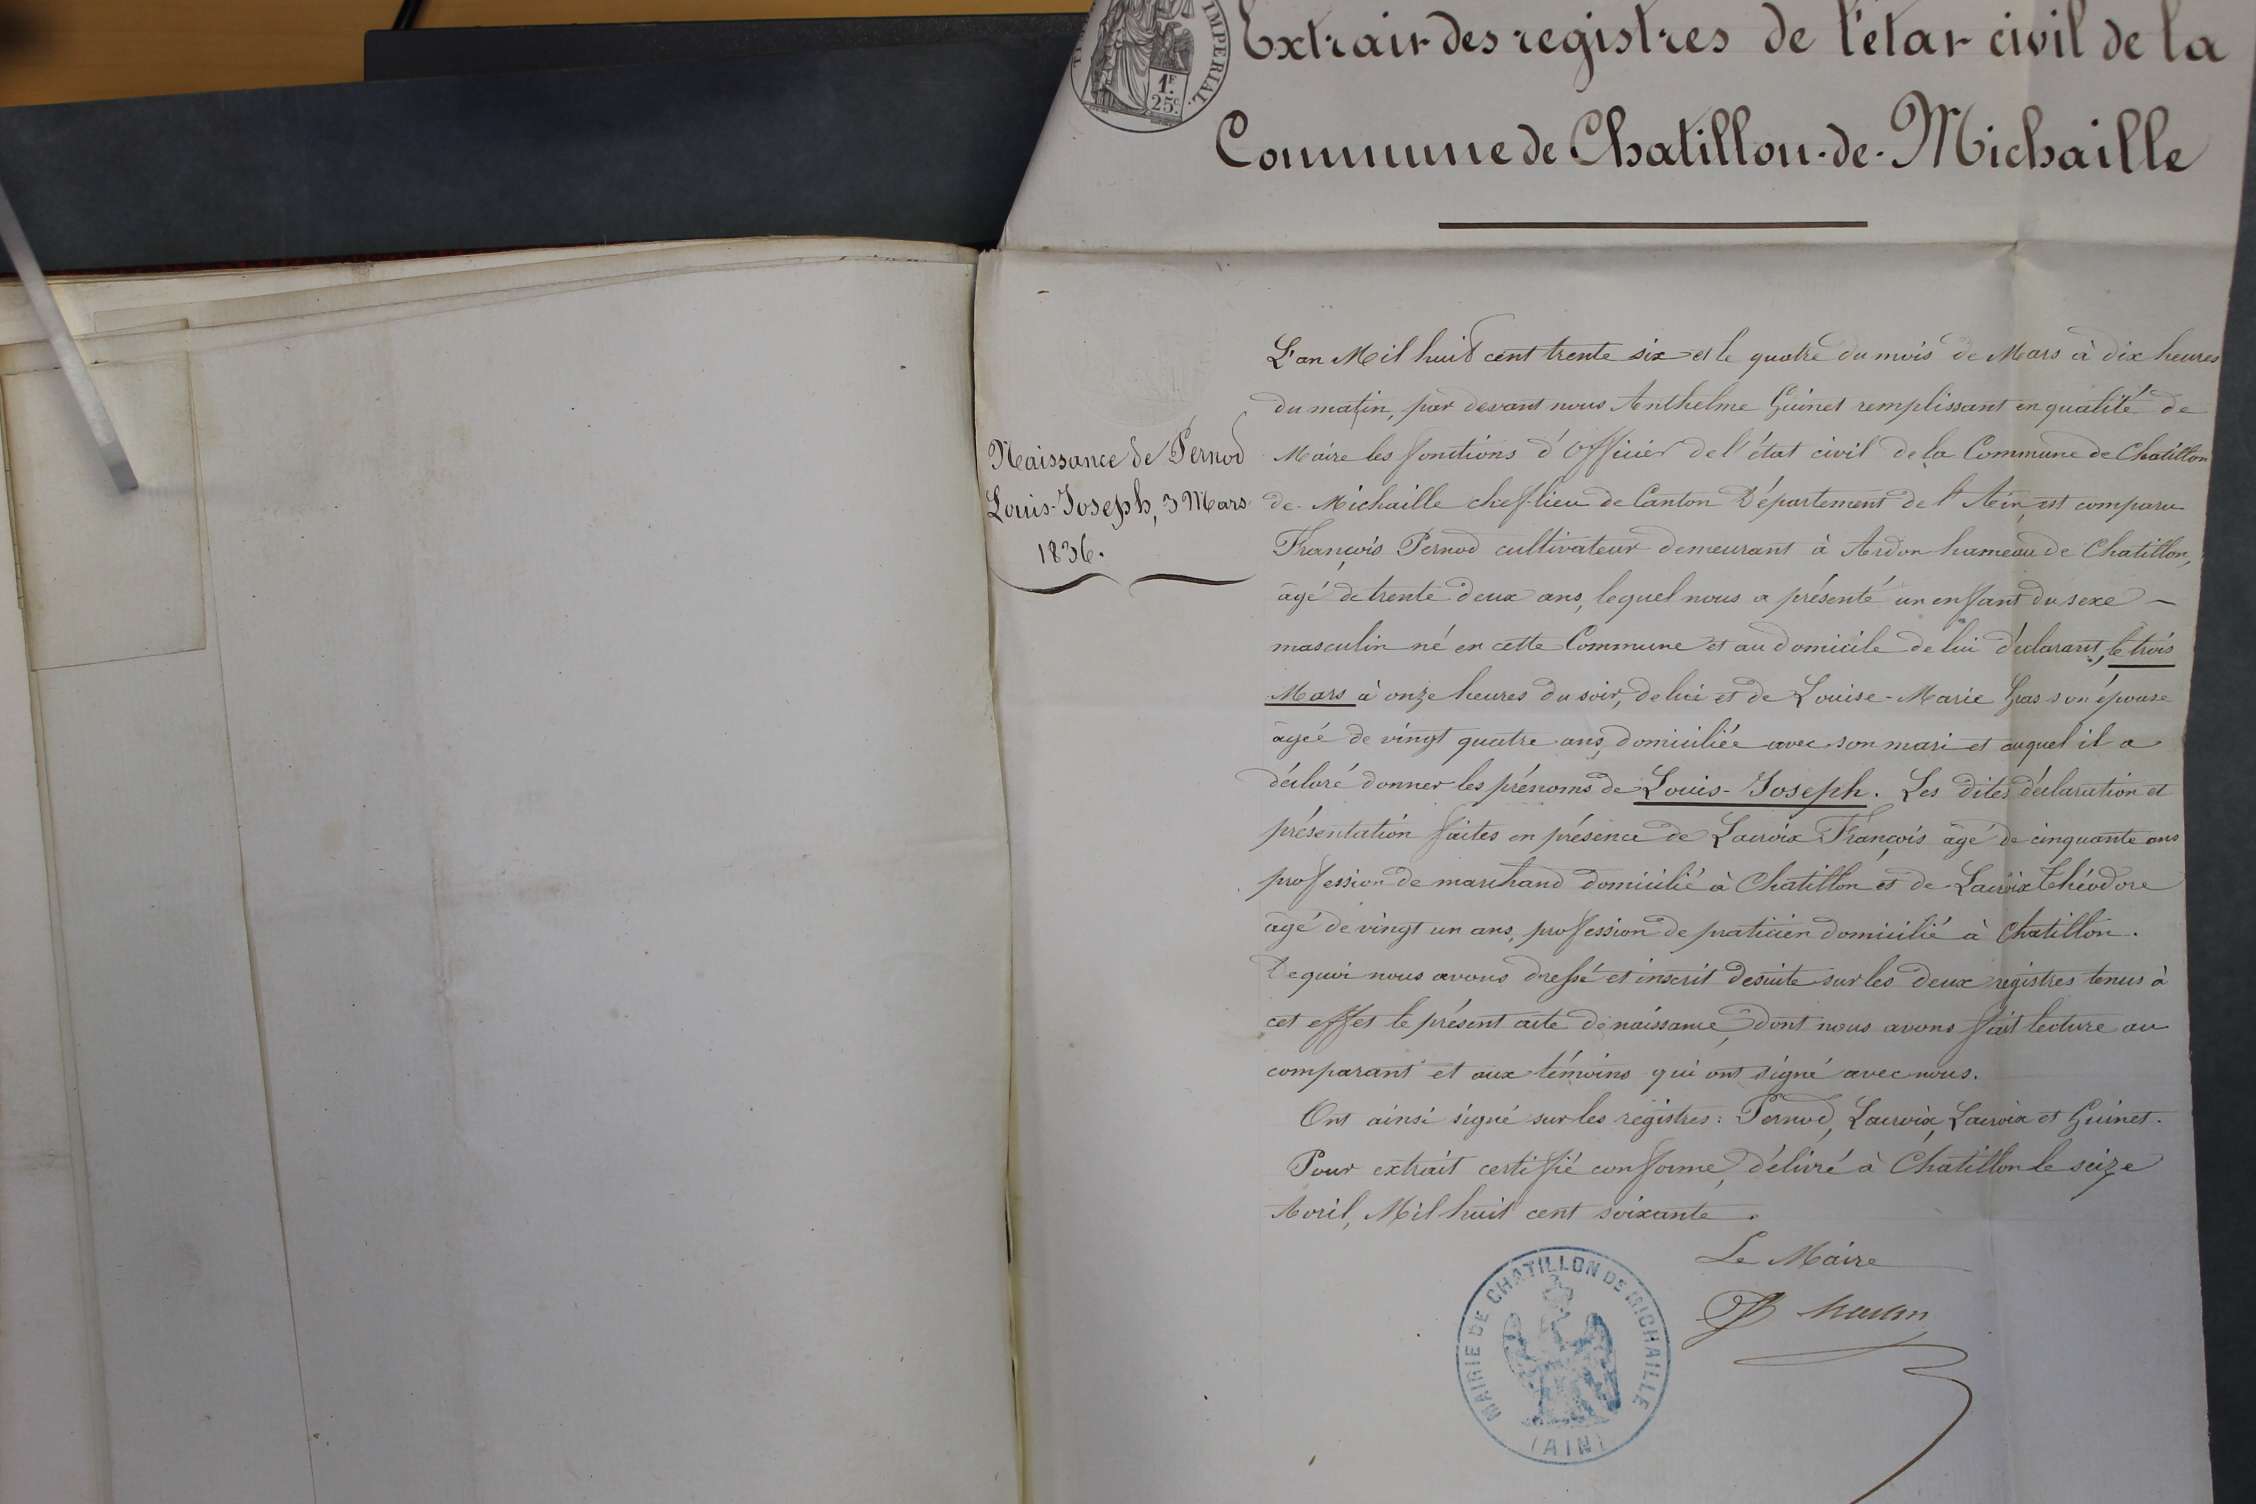 IMPERIAL.
1F.
25c.
Extrait des registres de l'état civil de la
Commune de Chatillon-de-Michaille
Naissance de Pernod
Louis-Joseph, 3 Mars
1836.
L'an Mil huit cent trente six et le quatre du mois de Mars à dix heures
du matin, par devant nous Anthelme Guinet remplissant en qualité de
Maire les fonctions d'Officier de l'état civil de la Commune de Chatillon
de Michaille chef-lieu de Canton Département de l'Ain, est comparu
François Pernod cultivateur demeurant à Ardon hameau de Chatillon,
âgé de trente deux ans, lequel nous a présenté un enfant du sexe —
masculin né en cette Commune et au domicile de lui déclarant, le trois
Mars à onze heures du soir, de lui et de Louise-Marie Gras son épouse
âgée de vingt quatre ans, domiciliée avec son mari et auquel il a
déclaré donner les prénoms de Louis-Joseph. Les dites déclaration et
présentation faites en présence de Lacroix François âgé de cinquante ans
profession de marchand domicilié à Chatillon et de Lacroix Théodore
âgé de vingt un ans, profession de praticien domicilié à Chatillon.
De quoi nous avons dressé et inscrit desuite sur les deux registres tenus à
cet effet le présent acte de naissance, dont nous avons fait lecture au
comparant et aux témoins qui ont signé avec nous.
Ont ainsi signé sur les registres: Pernod, Lacroix, Lacroix et Guinet.
Pour extrait certifié conforme, délivré à Chatillon le seize
Avril, Mil huit cent soixante.
Le Maire
MAIRIE DE CHATILLON DE MICHAILLE
(AIN)